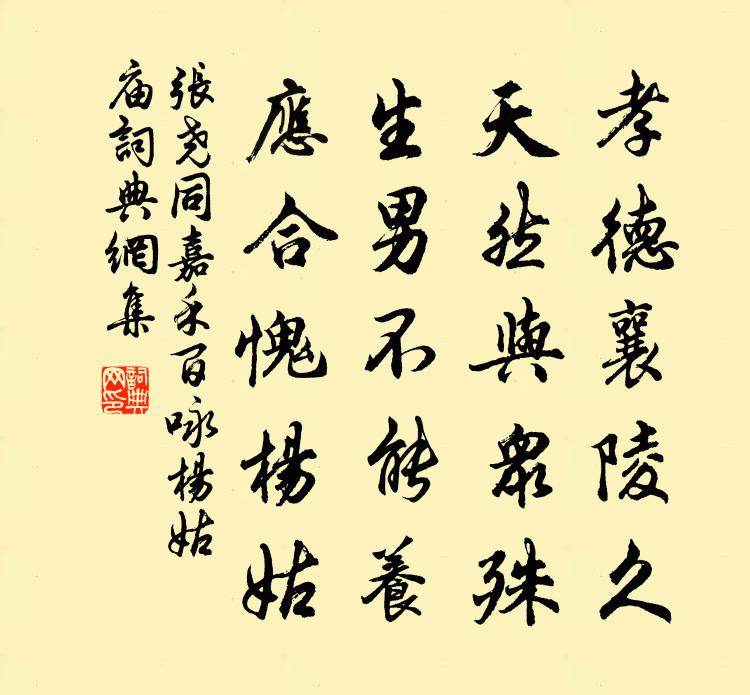 孝德襄陵久
天然與眾殊
生男不能養
應合愧楊姑
張尧同嘉禾百咏楊姑
庙詞典網集
詞典網印